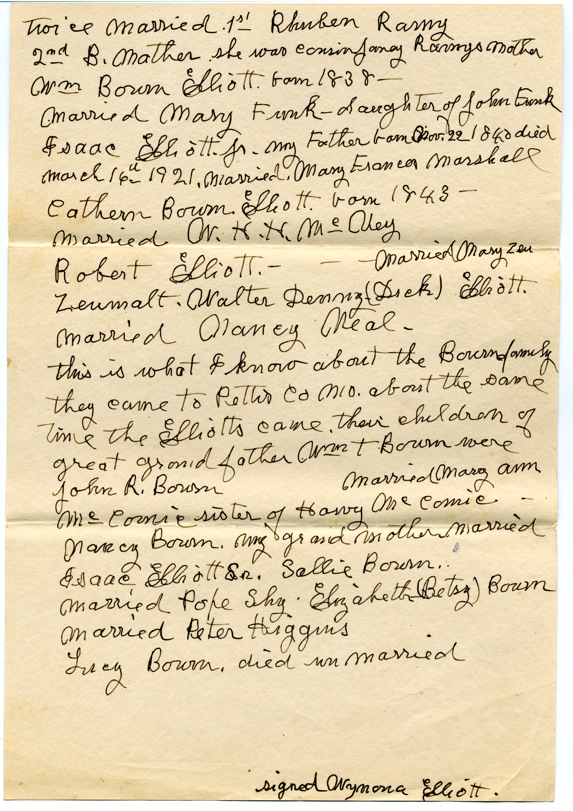 twice married. 1st Rhuben Ramy
2nd B. Mather she was cousin fancy Ramys mother
Wm Bourn Elliott. born 1838 —
Married Mary Funk - daughter of John Funk
Isaac Elliott Jr. my Father born Nov. 22 1840 died
march 16th 1921, Married, Mary Frances Marshall
Cathern Bourn. Elliott. born 1843 —
married. W. H. H. Mc
Robert Elliott. - — - Married Mary Zeu
Zeumalt. Walter Denny (Dick) Elliott.
married Nancy Neal -
this is what I know about the Bourn family
they came to Pettis Co Mo. about the same
time the Elliotts came. their children of
great grand father Wm t Bourn were
John R. Bourn Married Mary ann
Mc Comic sister of Harvy Mc Comic -
Nancy Bourn. my grand mother married
Isaac Elliott Sr. Sallie Bourn.
married Pope Shy. Elizabeth (Betsy) Bourn
married Peter Higgins
Lucy Bourn. died un married
signed Wynona Elliott.